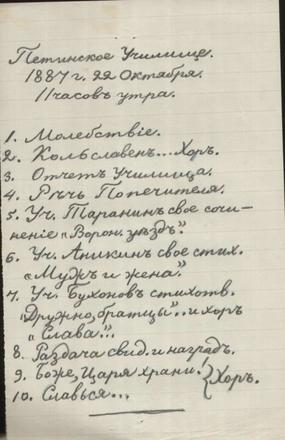 Петинское Училище.
1887 г. 22 Октября.
11 часовъ утра.
1. Молебствіе.
2. Коль славенъ... Хоръ.
3. Отчетъ Училища.
4. Рѣчь Попечителя.
5. Уч. Таранинъ свое сочи-
неніе „Ворон. уѣздъ."
6. Уч. Аникинъ свое стих.
„Мужъ и жена."
7. Уч. Бухоновъ стихотв.
„Дружно, братцы".. и хоръ
„Слава..."
8. Раздача свид. и наградъ.
9. Боже, Царя храни! } Хоръ.
10. Славься...